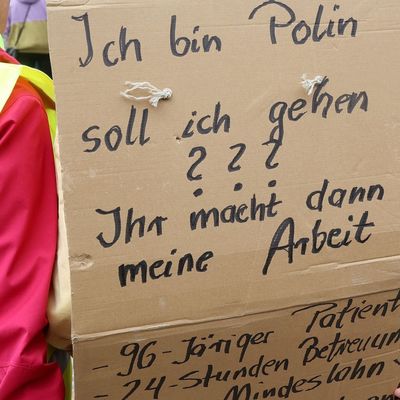 Ich bin Polin
soll ich gehen
? ? ?
Ihr macht dann
meine Arbeit
- 96-Järiger Patient
- 24-Stunden Betreuun
Mindeslohn